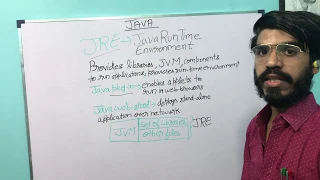 JAVA
JRE → Java RunTime
Environment
Provides libraries, JVM, components
to run applications, provides run-time environment
Java plug-in → enables applets to
run in web browsers
Java web start → deploys stand-alone
application over network
JVM
Set of Libraries
other files
JRE